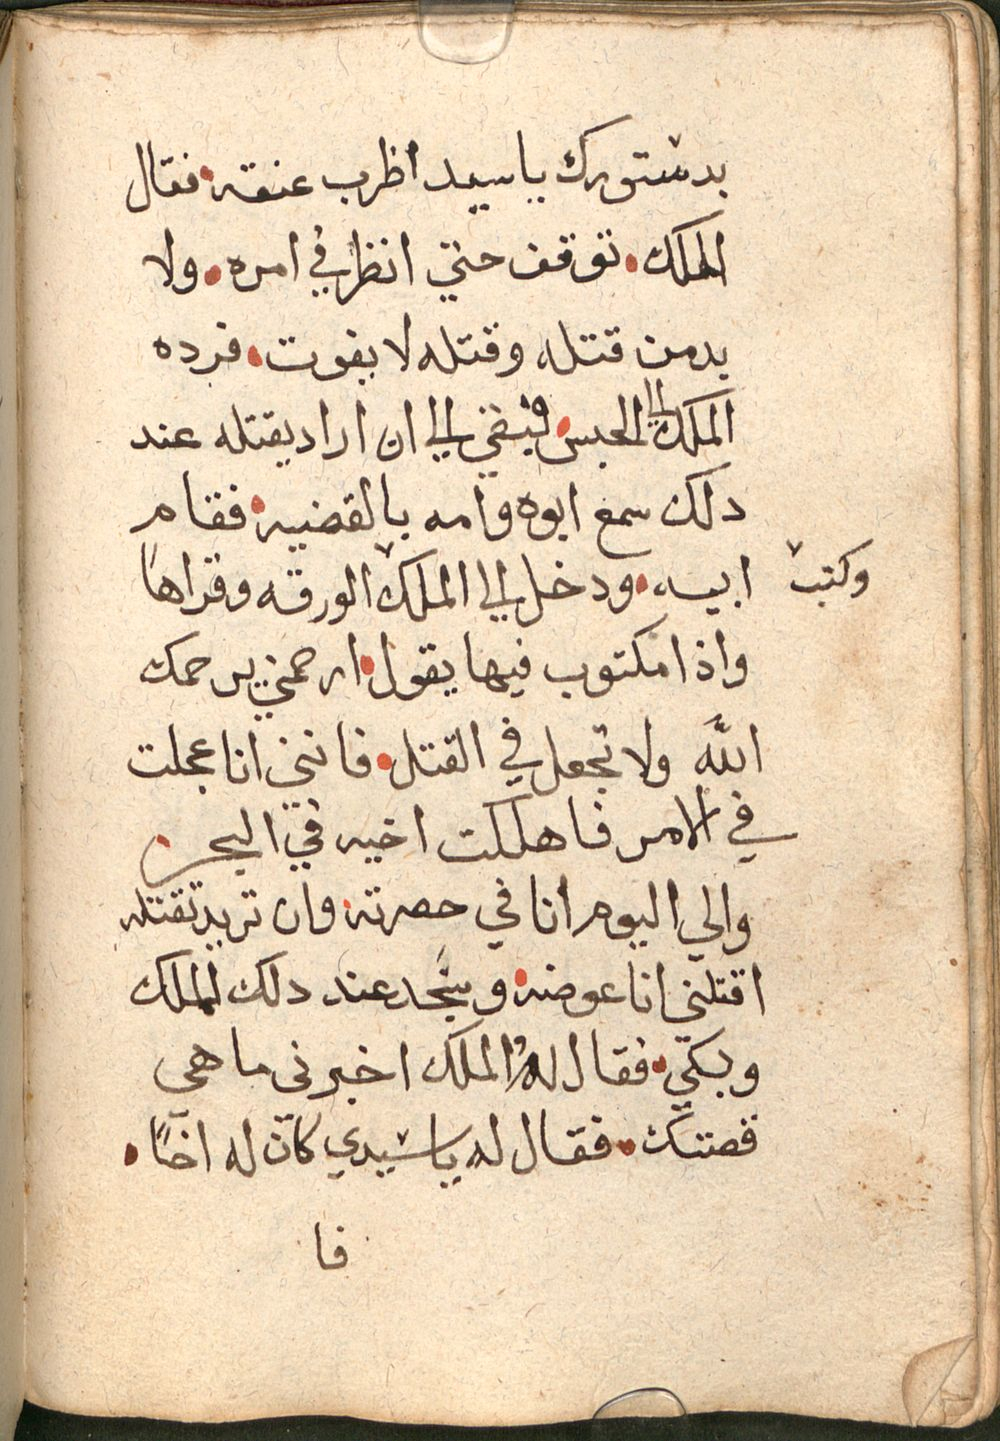 بدستورك يا سيد اظرب عنقه. فقال
الملك. توقف حتي انظر في امره. ولا
بد من قتله وقتله لا يفوت. فرده
الملك الي الحبس. فبقي الي ان اراد يقتله عند
دلك سمع ابوه وامه بالقضيه. فقام
وكتب
ابيه. ودخل الي الملك الورقه وقراها
واذا مكتوب فيها يقول. ارحمني يرحمك
الله ولا تجعل في القتل. فانني انا عجلت
في الامر فاهلكت اخيه في البحر.
والي اليوم انا في حصرته. وان تريد تقتله
اقتلني انا عوضه. وسجد عند دلك الملك
وبكي. فقال له الملك اخبرني ما هي
قصتتك. فقال له يا سيدي كان له اخا.
فا